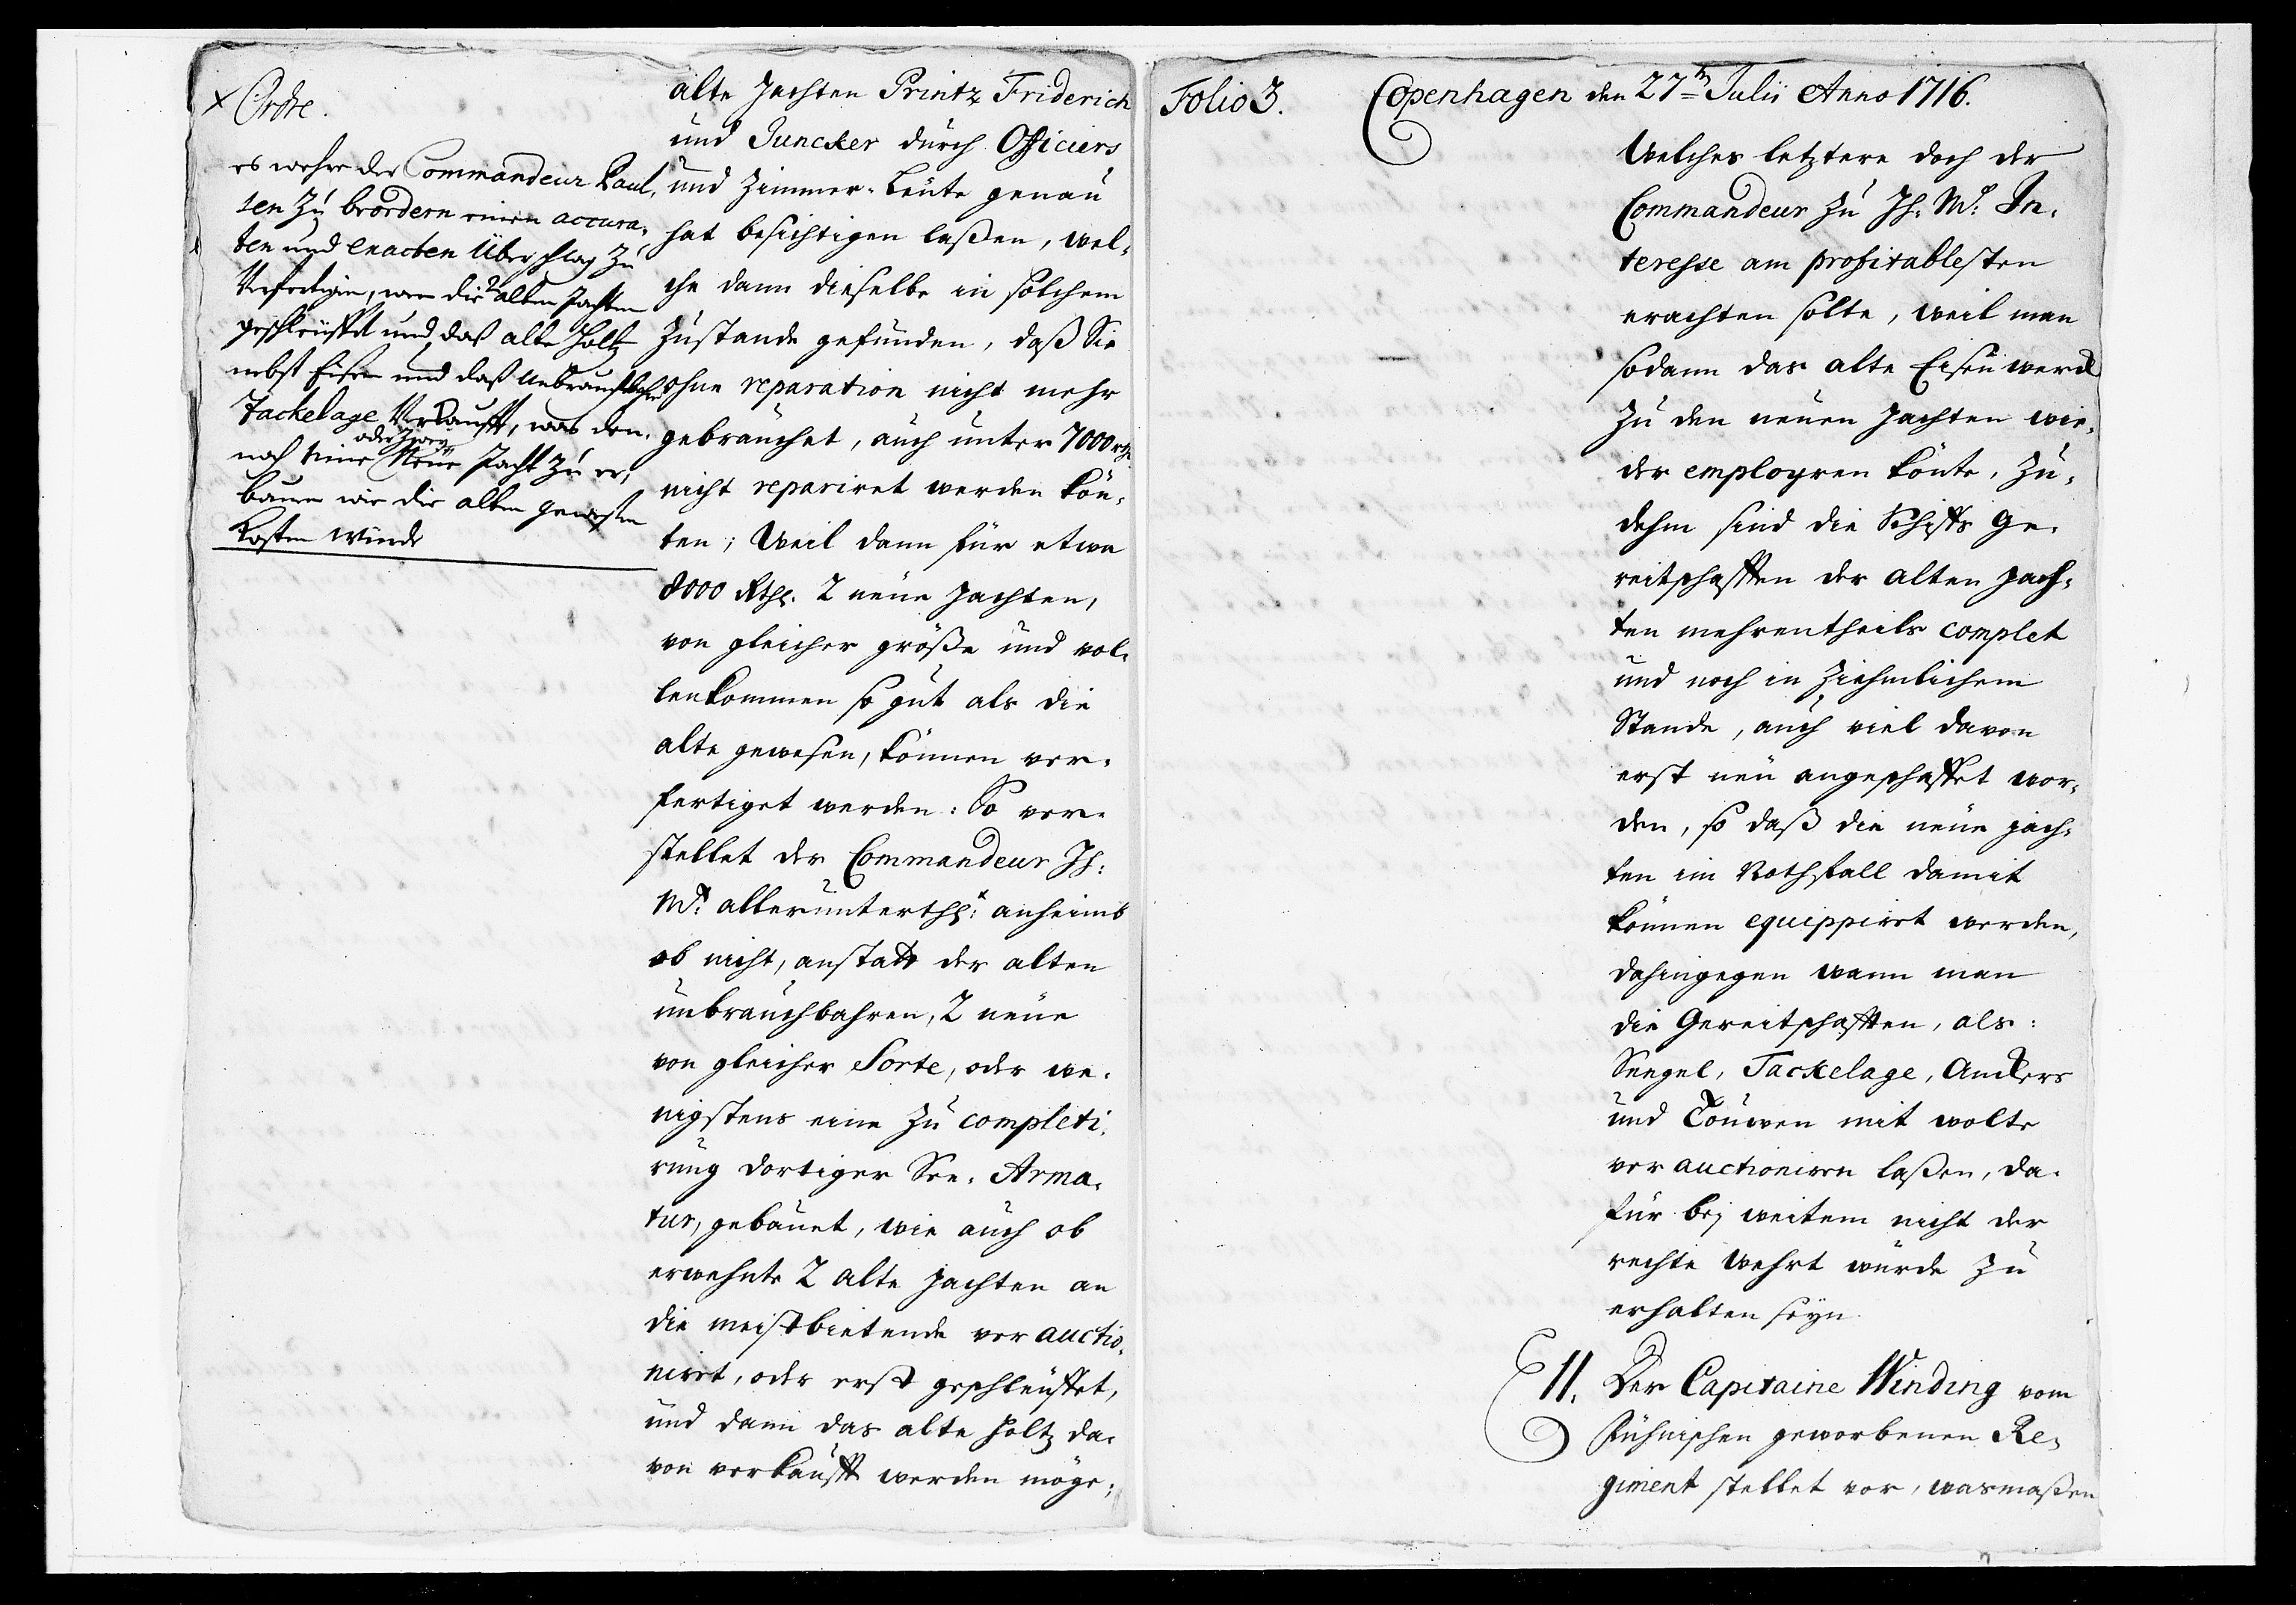 x Ordre.
es wehre der Commandeur Paul,
sen zu beordern einen accura,
ten und exacten Überschlag zu
Verfertigen, wan die 2 alten Jachten
geschleüffet und daß alte Holtz
nebst Eisen und daß unbrauchbahre
Tackelage Verkaufft, was den,
oder zwey
noch eine Neue Jacht zu er,
bauen wie die alten gewesen
kosten würde
alte Jachten Printz Friderich
und Juncker durch Officiers
und Zimmer-Leute genau
hat besichtigen laßen, wel,
che dann dieselbe in solchem
Zustande gefunden, daß Sie
ohne reparation nicht mehr
gebrauchet, auch unter 7000 rth.
nicht repariret werden kön,
ten; Weil dann für etwa
8000 Rthl. 2 neue Jachten,
von gleicher größe und vol,
lenkommen so gut als die
alte gewesen, können ver,
fertiget werden: So ver,
stellet der Commandeur Ih:
Mt: allerunterthl: anheimb
ob nicht, anstatt der alten
unbrauchbahren, 2 neue
von gleicher Sorte, oder we,
nigstens eine zu completi,
rung dortiger See-Arma,
tur, gebauet, wie auch ob
erwehnte 2 alte Jachten an
die meistbietende verauctio,
niret, oder erst geschleüffet,
und dann das alte Holtz da,
von verkaufft werden möge;
Folio 3. Copenhagen den 27ten Julii Anno 1716.
Welches letztere doch der
Commandeur zu Ih: Mt: In,
teresse am profitablesten
erachten solte, weil man
sodann das alte Eisenwerck
zu den neuen Jachten wie,
der employren könte, Zu,
dehm sind die Schiffs Ge,
reitschafften der alten Jach,
ten mehrentheils complet
und noch in ziehmlichem
Stande, auch viel davon
erst neu angeschaffet wor,
den, so daß die neue Jach,
ten im Nothfall damit
können equippiret werden,
dahingegen wann man
die Gereitschafften, als:
Seegel, Tackelage, Anckers
und Touwen mit wolte
verauctioniren laßen, da,
für bey weitem nicht der
rechte Wehrt würde zu
erhalten seyn.
11. Der Capitaine Winding vom
Fühnischen geworbenen Re,
giment stellet vor, wasmaßen